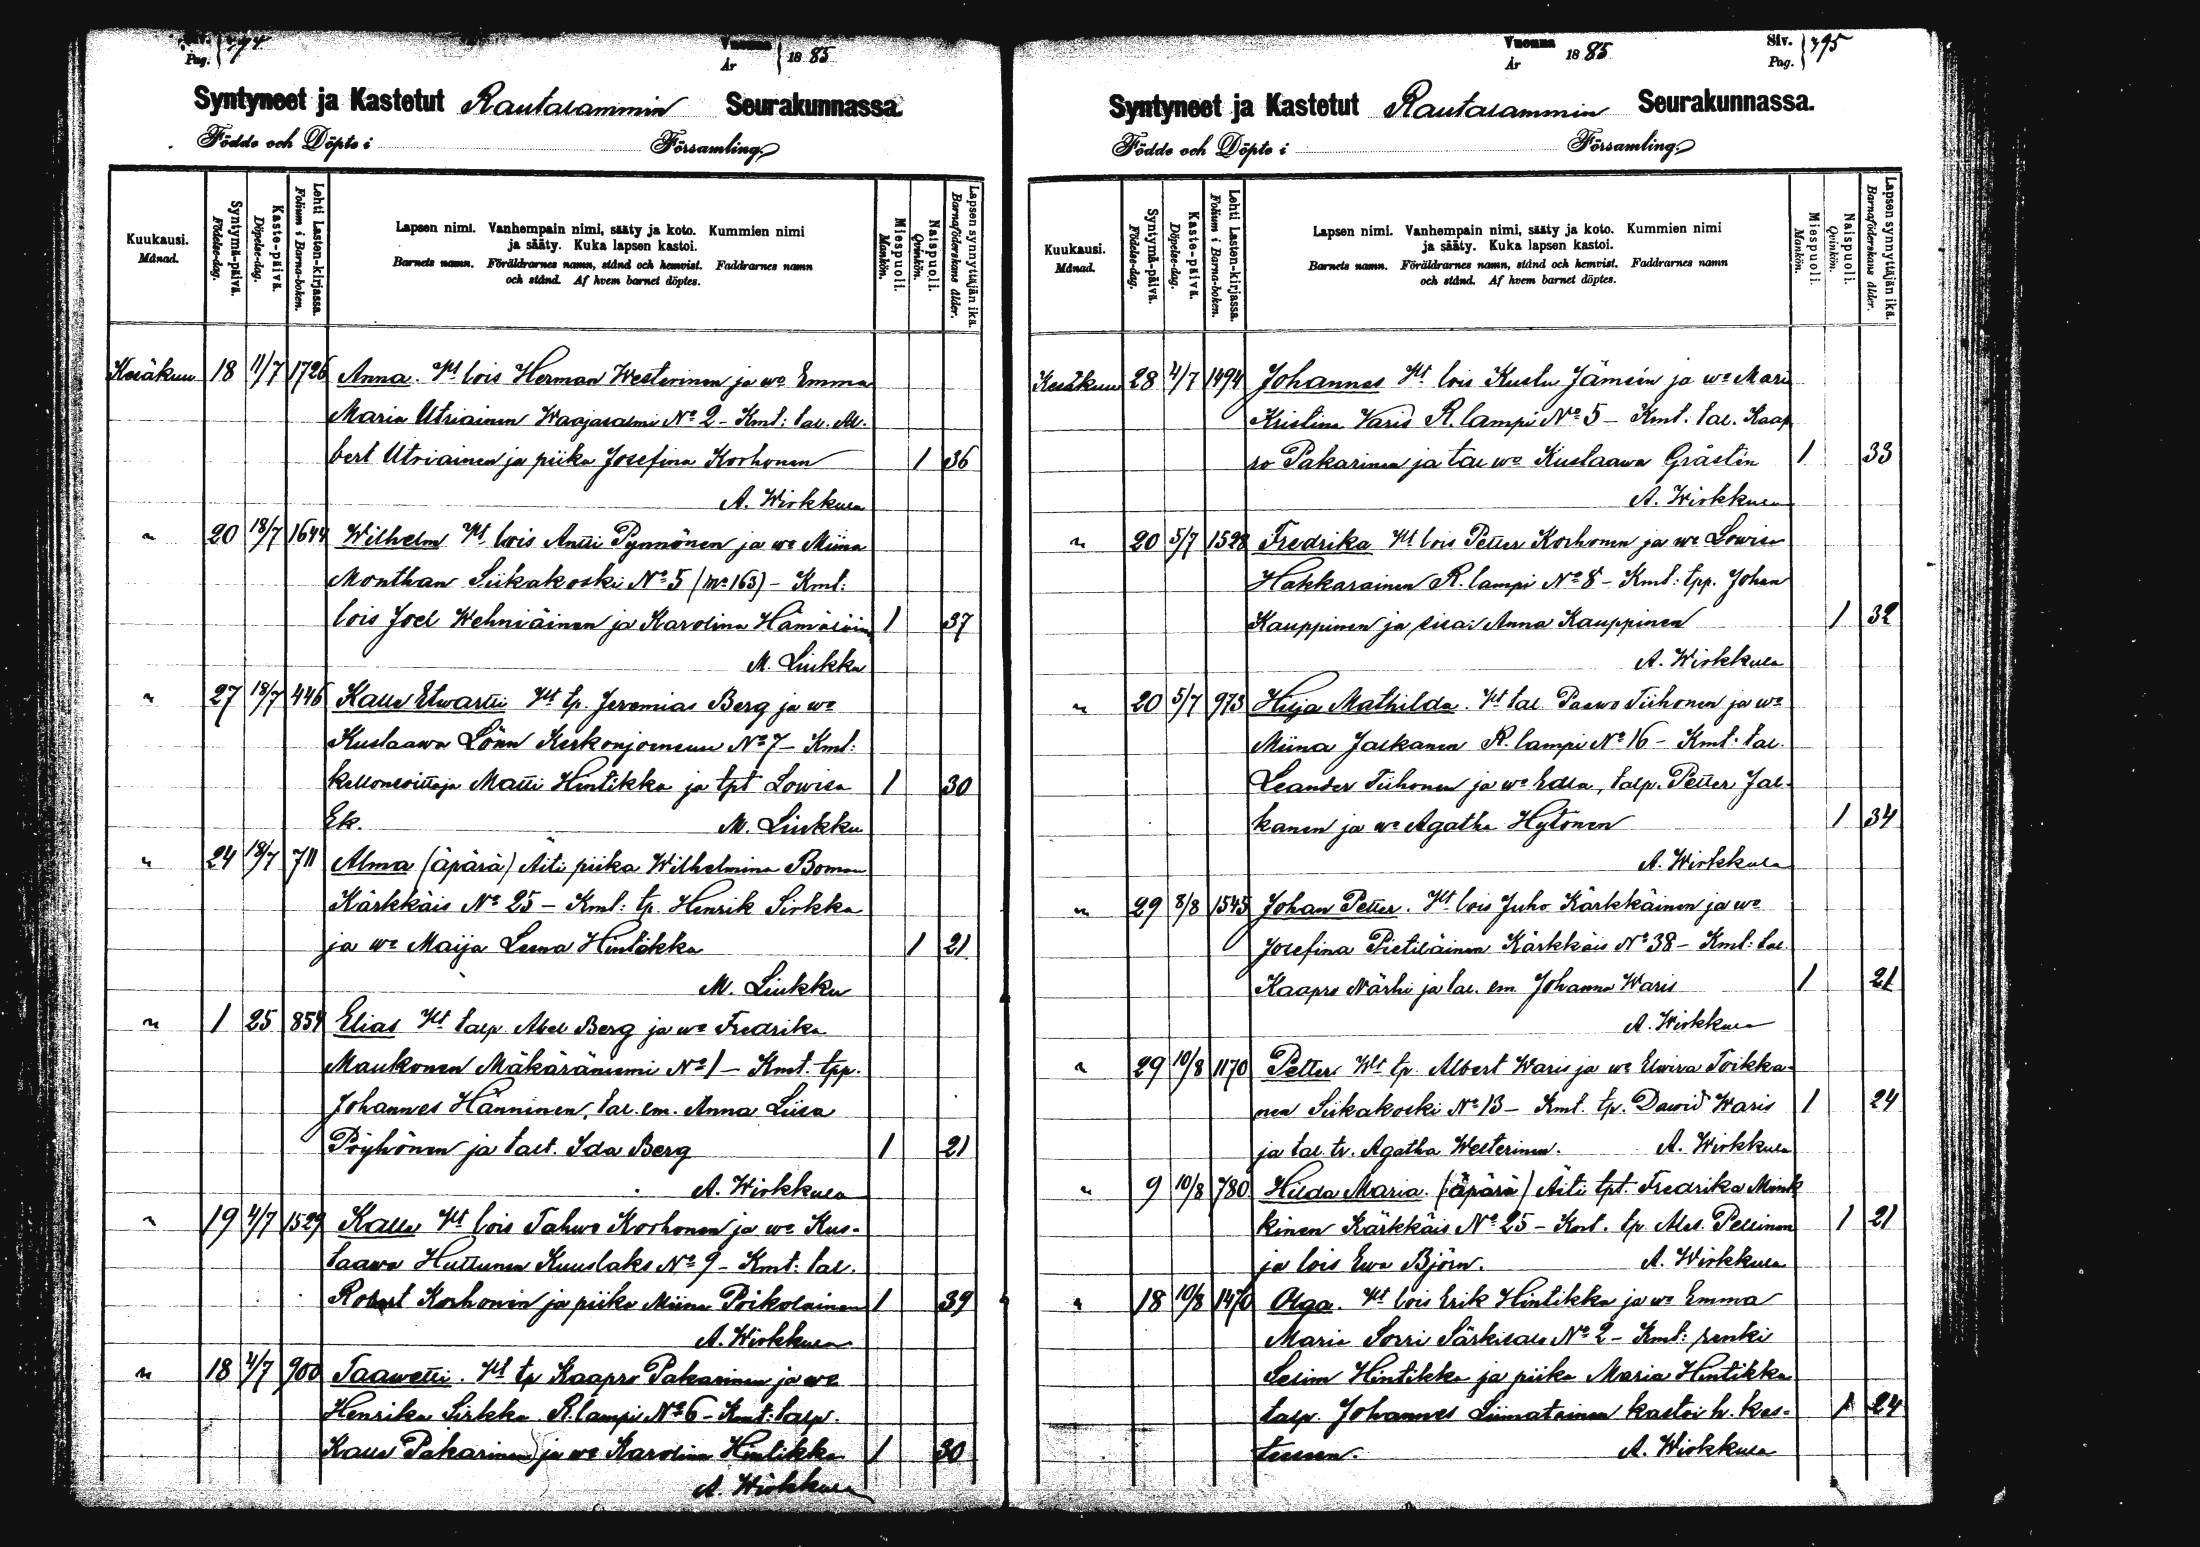 Pag.
Vuonna 1885
År
Syntyneet ja Kastetut Rautalammin Seurakunnassa.
Födde och Döpte i Församling.
Kuukausi. Månad.
Syntymä-päivä. Födelse-dag.
Kaste-päivä. Döpelse-dag.
Lehti Lasten-kirjassa. Folium i Barna-boken.
Lapsen nimi. Vanhempain nimi, sääty ja koto. Kummien nimi
ja sääty. Kuka lapsen kastoi.
Barnets namn. Föräldrarnes namn, stånd och hemvist. Faddrarnes namn
och stånd. Af hvem barnet döptes.
Miespuoli. Mankön.
Naispuoli. Qvinkön.
Lapsen synnyttäjän ikä. Barnaföderskans ålder.
Kesäkuu 18 11/7 1726 Anna. Vht lois Herman Westerinen ja wo Emma
Maria Utriainen Waajasalmi No 2 - Kmt: tal. Al-
bert Utriainen ja piika Josefina Korhonen 1 36
A. Wirkkula
" 20 18/7 1644 Wilhelm Vht lois Antti Pynnönen ja wo Miina
Monthan Siikakoski No 5 (mo 163) - Kmt:
lois Joel Wehniäinen ja Karolina Hämäläin 1 37
M. Liukku
" 27 18/7 446 Kalle Etwartti Vht tp. Jeremias Berg ja wo
Kustaawa Lönn Kerkonjoensuu No 7 - Kmt:
kellonsoittaja Matti Hintikka ja tpt Lowisa 1 30
Ek. M. Liukku
" 24 18/7 711 Alma (äpärä) Äiti piika Wilhelmina Boman
Kärkkäis No 25 - Kmt: tp. Henrik Sirkka
ja wo Maija Leena Hintikka 1 21
M. Liukku
" 1 25 854 Elias Vht talp. Abel Berg ja wo Fredrika
Maukonen Mäkäräniemi No 1 - Kmt. tpp.
Johannes Hänninen, tal. em. Anna Liisa
Pöyhönen ja talt. Ida Berg 1 21
A. Wirkkula
" 19 4/7 1529 Kalle Vht lois Tahwo Korhonen ja wo Kus-
taawa Huttunen Kuuslaks No 9 - Kmt: tal.
Robert Korhonen ja piika Miina Poikolainen 1 39
A. Wirkkula
" 18 4/7 900 Taawetti. Vht tp Kaapro Pakarinen ja wo
Henrika Sirkka R.lampi No 6 - Kmt: talp.
Kalle Pakarinen ja wo Karolina Hintikka 1 30
A. Wirkkula
Vuonna 1885
År
Siv. Pag. 395
Syntyneet ja Kastetut Rautalammin Seurakunnassa.
Födde och Döpte i Församling.
Kuukausi. Månad.
Syntymä-päivä. Födelse-dag.
Kaste-päivä. Döpelse-dag.
Lehti Lasten-kirjassa. Folium i Barna-boken.
Lapsen nimi. Vanhempain nimi, sääty ja koto. Kummien nimi
ja sääty. Kuka lapsen kastoi.
Barnets namn. Föräldrarnes namn, stånd och hemvist. Faddrarnes namn
och stånd. Af hvem barnet döptes.
Miespuoli. Mankön.
Naispuoli. Qvinkön.
Lapsen synnyttäjän ikä. Barnaföderskans ålder.
Kesäkuu 28 4/7 1494 Johannes Vht lois Kustu Jämsén ja wo Mari
Kristina Varis R.lampi No 5 - Kmt. tal. Kaap
ro Pakarinen ja tal wo Kustaawa Gråsten 1 33
A. Wirkkula
" 20 5/7 1528 Fredrika Vht lois Petter Korhonen ja wo Lowisa
Hakkarainen R.lampi No 8 - Kmt: tpp. Johan
Kauppinen ja sisar Anna Kauppinen 1 32
A. Wirkkula
" 20 5/7 973 Hilja Mathilda. Vht tal Paawo Tiihonen ja wo
Miina Jalkanen R.lampi No 16 - Kmt. tal.
Leander Tiihonen ja wo Edla, talp. Petter Jal-
kanen ja wo Agatha Hytönen 1 34
A. Wirkkula
" 29 8/8 1545 Johan Petter. Vht lois Juho Kärkkäinen ja wo
Josefina Pietiläinen Kärkkäis No 38 - Kmt: tal
Kaapro Närhi ja tal. em Johanna Waris 1 21
A. Wirkkula
" 29 10/8 1170 Petter Vht tp. Albert Waris ja wo Elwira Toikka-
nen Siikakoski No 13 - Kmt. tp. Dawid Waris 1 24
ja tal. tr. Agatha Westerinen. A. Wirkkula
" 9 10/8 780 Hilda Maria. (äpärä) Äiti tpt. Fredrika Mink
kinen Kärkkäis No 25 - Kmt. tp. Alex. Pellinen 1 21
ja lois Ewa Björn. A. Wirkkula
" 18 10/8 1470 Olga. Vht lois Erik Hintikka ja wo Emma
Maria Sorri Särkisalo No 2 - Kmt: renki
Selim Hintikka ja piika Maria Hintikka
talp. Johannes Liimatainen kastoi h. kas- 1 24
teessen. A. Wirkkula